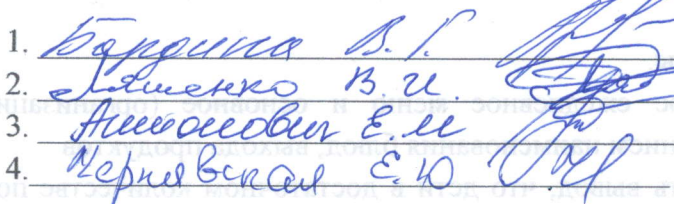 1. Бардина В.Г.
2. Ляшенко В.И.
3. Антонович Е.М
4. Чернявская Е.Ю